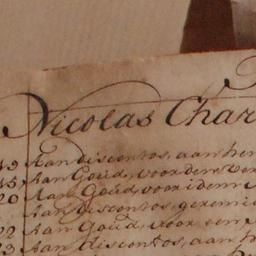 Nicolas Char
49 Aan discontos, aan hen
45 Aan Goud, voor dem ver
20 Aan Goud, voor idem
Aan discontos, geremi
22 Aan Goud, voor
23 Aan discontos, aan